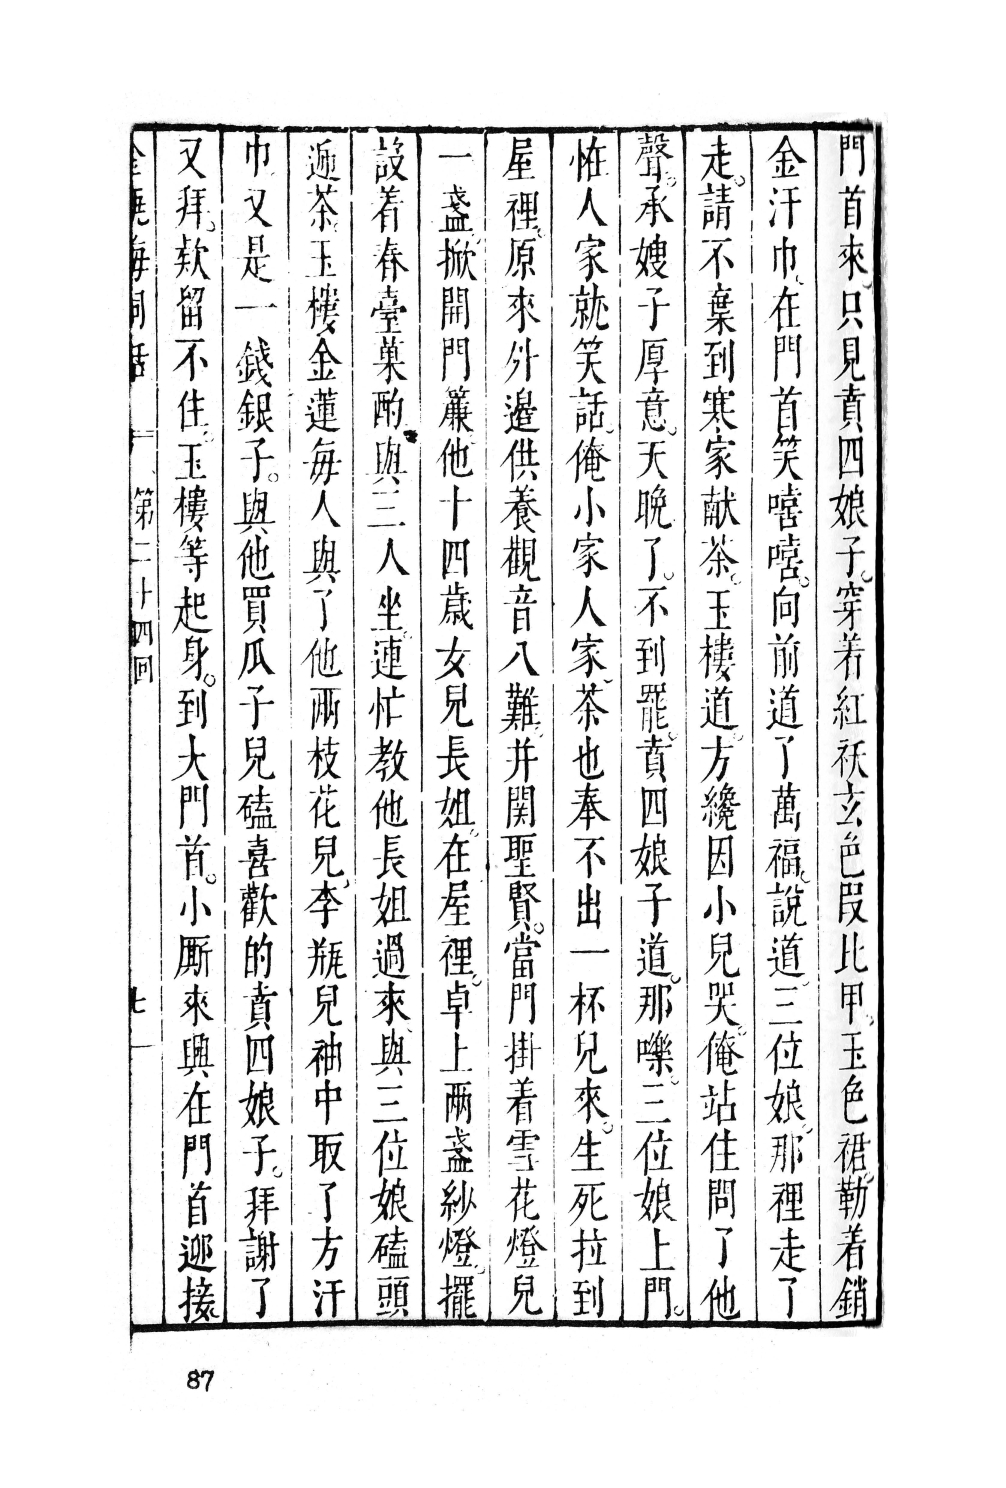 門首來只見賁四娘子。穿着紅袄玄色段比甲。玉色裙。勒着銷
金汗巾。在門首笑嘻嘻。向前道了萬福。說道三位娘。那裡走了
走。請不棄到寒家献茶。玉樓道。方纔因小兒哭。俺站住問了他
聲。承嫂子厚意。天晚了。不到罷。賁四娘子道。那嚛。三位娘上門。
怪人家就笑話。俺小家人家。茶也奉不出一杯兒來。生死拉到
屋裡。原來外邉供養觀音八難。并関聖賢。當門掛着雪花燈兒
一盞。掀開門簾。他十四歲女兒長姐。在屋裡。卓上兩盞紗燈。擺
設着春臺菓酌。與三人坐。連忙教他長姐過來。與三位娘磕頭
逓茶。玉樓金蓮每人與了他兩枝花兒。李瓶兒袖中取了方汗
巾。又是一錢銀子。與他買瓜子兒磕。喜歡的賁四娘子。拜謝了
又拜。欵留不住。玉樓等起身。到大門首。小厮來興在門首迎接。
金瓶梅詞話 第二十四回 七
87